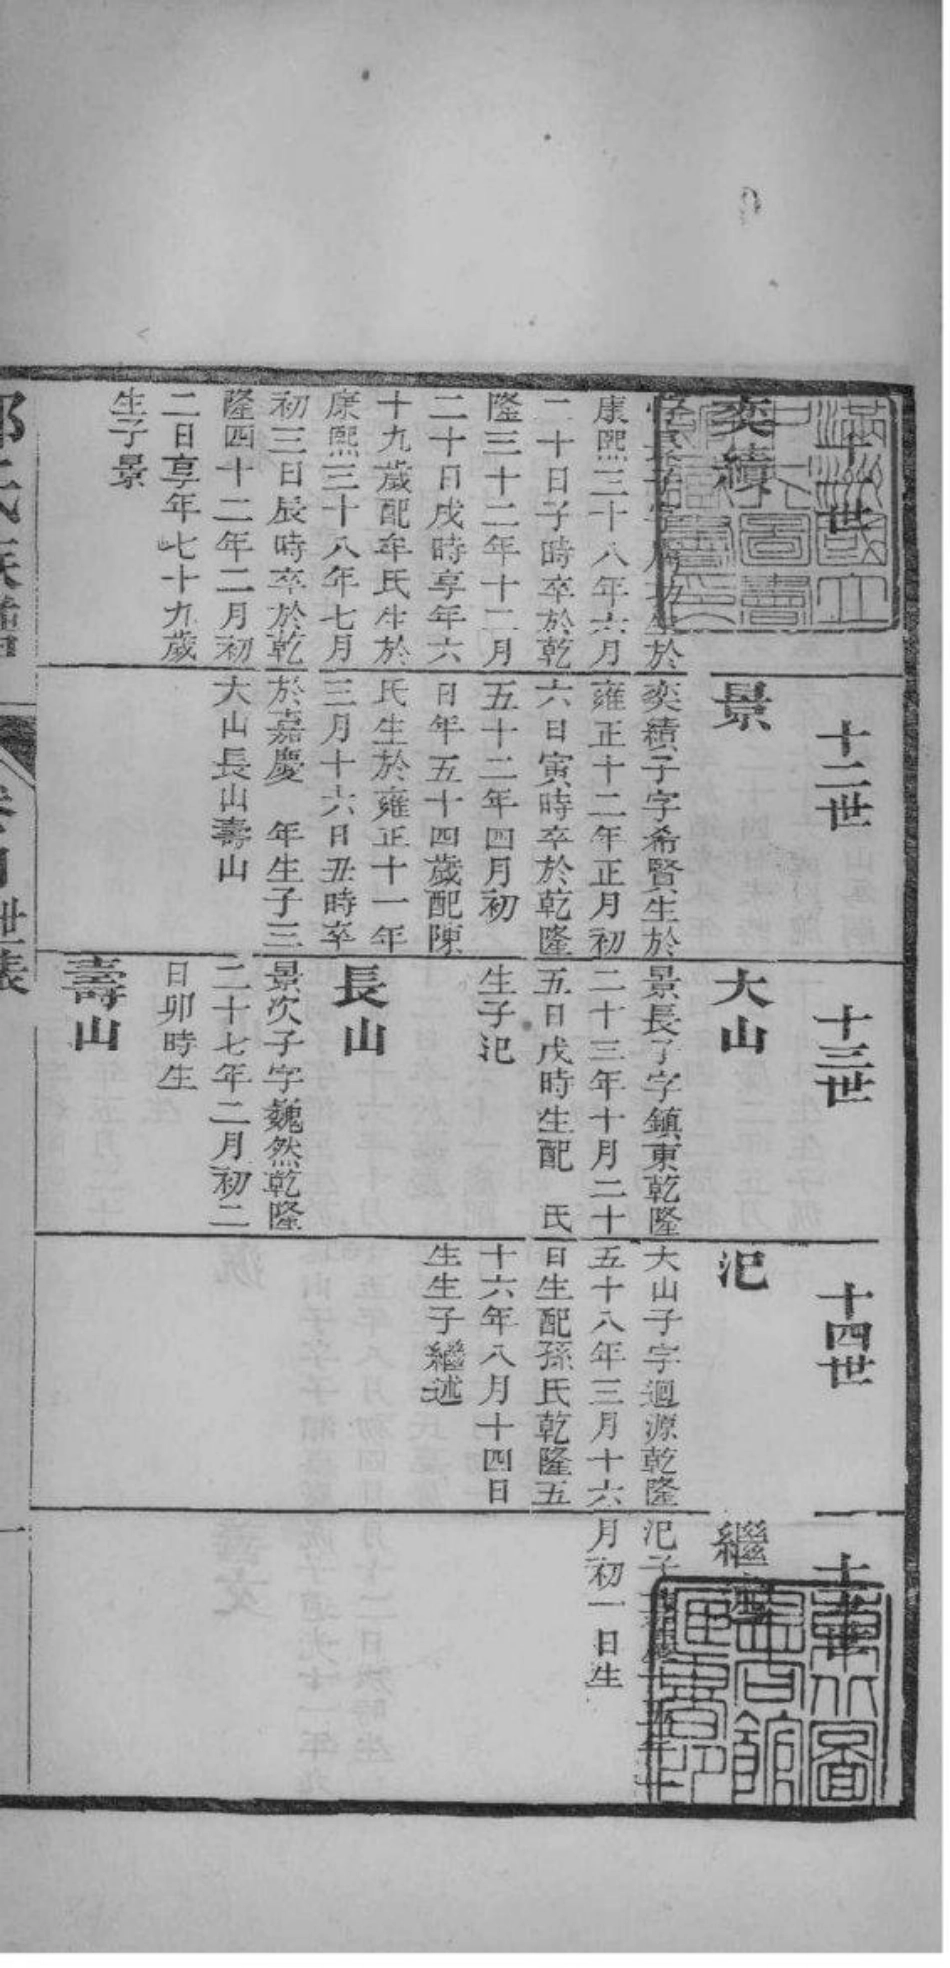 十一世
奕績
康熙三十八年六月
二十日子時卒於乾
隆三十二年十二月
二十日戌時享年六
十九歲配牟氏生於
康熙三十八年七月
初三日辰時卒於乾
隆四十二年二月初
二日享年七十九歲
生子景
十二世
景
奕績子字希賢生於
雍正十二年正月初
六日寅時卒於乾隆
五十二年四月初
日年五十四歲配陳
氏生於雍正十一年
三月十六日丑時卒
於嘉慶 年生子三
大山長山壽山
十三世
大山
景長子字鎮東乾隆
二十三年十月二十
五日戌時生配 氏
生子汜
長山
景次子字巍然乾隆
二十七年二月初二
日卯時生
壽山
十四世
汜
大山子字迴源乾隆
五十八年三月十六
日生配孫氏乾隆五
十六年八月十四日
生生子繼述
繼
汜子
月初一日生
世表